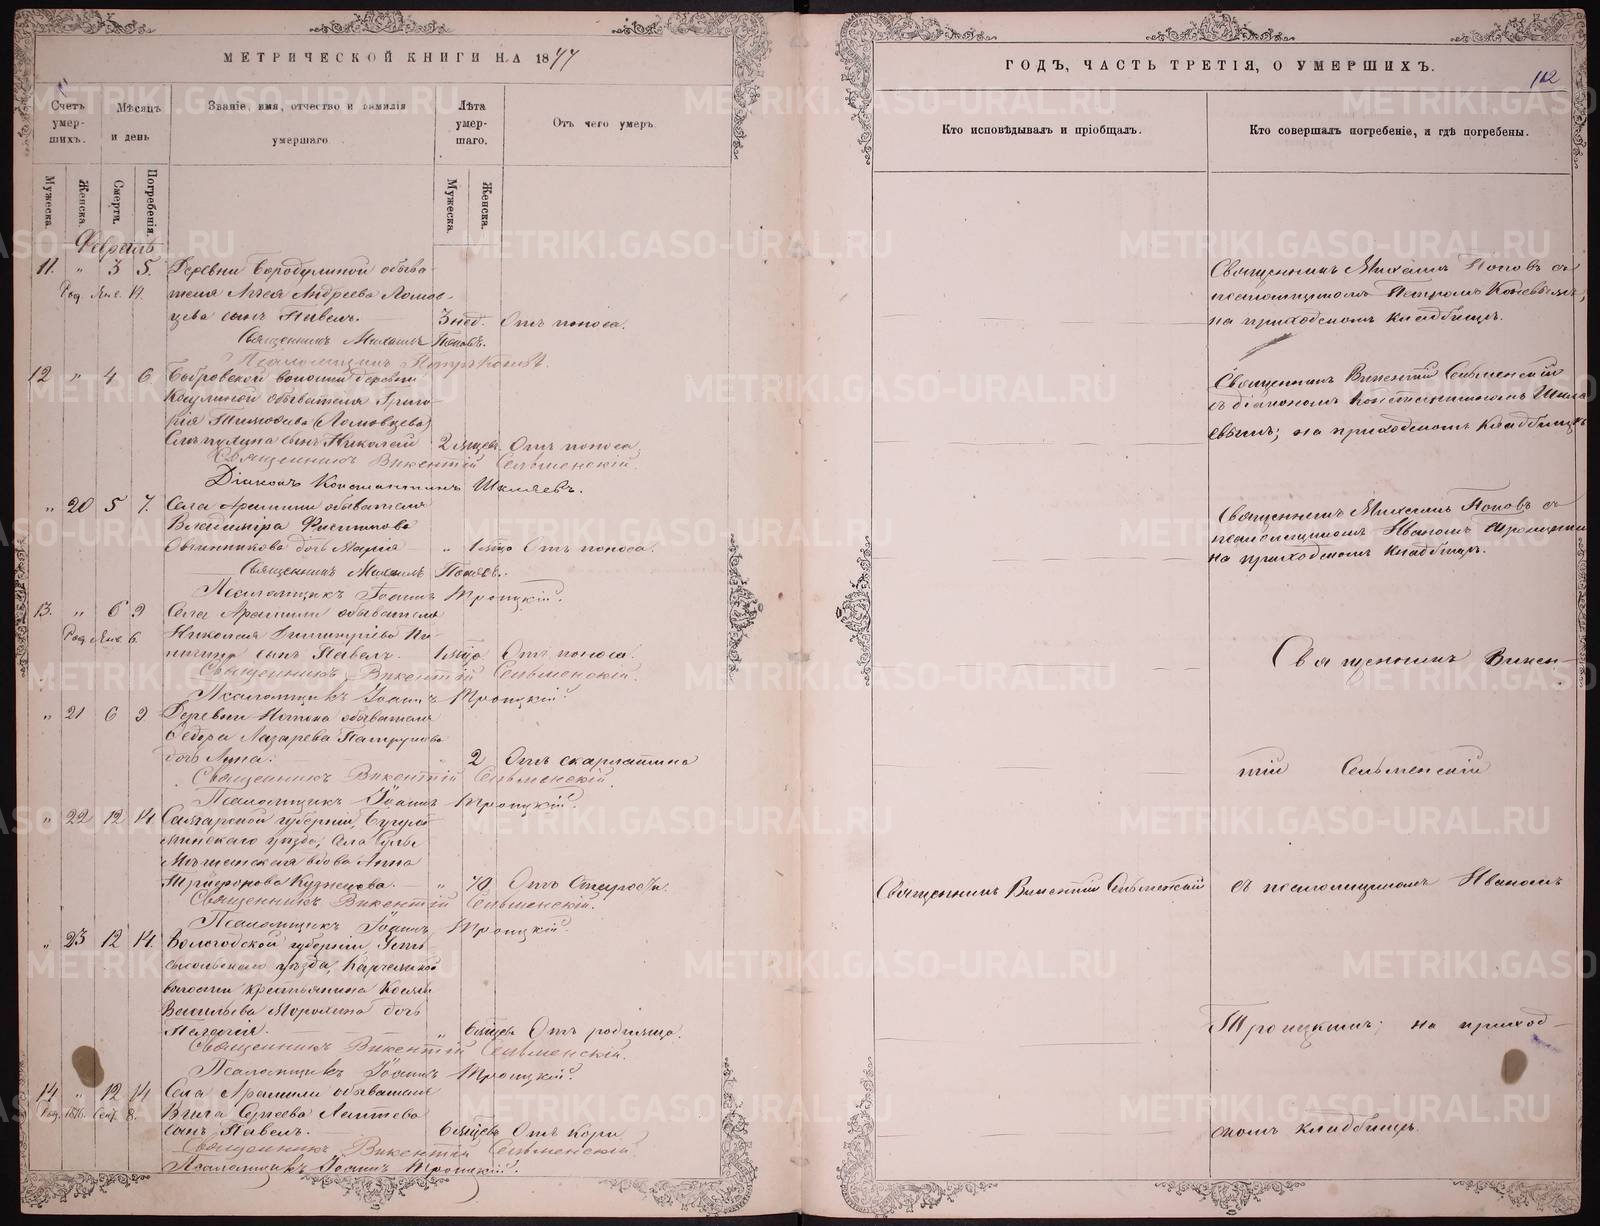 МЕТРИЧЕСКОЙ КНИГИ НА 1877
Счетъ умер-шихъ.
Мѣсяцъ и день
Званіе, имя, отчество и фамилія умершаго
Лѣта умер-шаго.
Отъ чего умеръ.
Мужеска.
Женска.
Смерти.
Погребенія.
Мужеска.
Женска.
Февраль
11. " 3 5. Деревни Бородулиной обыва-
Род. Янв. 17. теля Андреева Ломов-
цева сынъ Павелъ. 3 нед. Отъ поноса.
Священникъ Михаилъ Поповъ.
Псаломщикъ Петръ
12 " 4 6 Бобровской волости деревни
обывателя Григо-
рія Тимофеева (Ломовцева)
сынъ Николай 2 мѣсец. Отъ поноса.
Священникъ Викентій Сельменскій.
Діаконъ Константинъ Шкляевъ.
" 20 5 7. Села Арамили обывателя
Владиміра Филиппова
Овчинникова дочь Марія " 1 мѣс Отъ поноса.
Священникъ Михаилъ Поповъ.
Псаломщикъ Іоаннъ Троицкій.
13. " 6 9 Села Арамили обывателя
Род. Янв. 6. Николая Димитріева
сынъ Павелъ. 1 мѣс Отъ поноса.
Священникъ Викентій Сельменскій.
Псаломщикъ Іоаннъ Троицкій.
" 21 6 9 Деревни обывателя
Федора Лазарева Патрушева
дочь Анна. 2 Отъ скарлатина
Священникъ Викентій Сельменскій
Псаломщикъ Іоаннъ Троицкій.
" 22 12 14 Самарской губерніи, Бугуль-
минскаго уѣзда, села
вдова Анна
Трифонова Кузнецова. " 70. Отъ старости.
Священникъ Викентій Сельменскій.
Псаломщикъ Іоаннъ Троицкій.
" 23 12 14. Вологодской губерніи Усть-
сысольскаго уѣзда,
волости крестьянина Козьмы
Васильева дочь
Пелагія. " 6 мѣсец Отъ родимца.
Священникъ Викентій Сельменскій.
Псаломщикъ Іоаннъ Троицкій.
14 " 12 14 Села Арамили обывателя
Род. 1876. Сент. 8. Сергеева Лаптева
сынъ Павелъ. 6 мѣсец Отъ кори
Священникъ Викентій Сельменскій.
Псаломщикъ Іоаннъ Троицкій.
ГОДЪ, ЧАСТЬ ТРЕТІЯ, О УМЕРШИХЪ.
112
Кто исповѣдывалъ и пріобщалъ.
Кто совершалъ погребеніе, и гдѣ погребены.
Священникъ Михаилъ Поповъ съ
псаломщикомъ Петромъ
на приходскомъ кладбищѣ.
Священникъ Викентій Сельменскій
съ діакономъ Константиномъ Шкля-
евымъ; на приходскомъ кладбищѣ
Священникъ Михаилъ Поповъ съ
псаломщикомъ Иваномъ Троицкимъ
на приходскомъ кладбищѣ.
Священникъ Викен-
тій Сельменскій
Священникъ Викентій Сельменскій
съ псаломщикомъ Иваномъ
Троицкимъ; на приход-
скомъ кладбищѣ.
METRIKI.GASO-URAL.RU